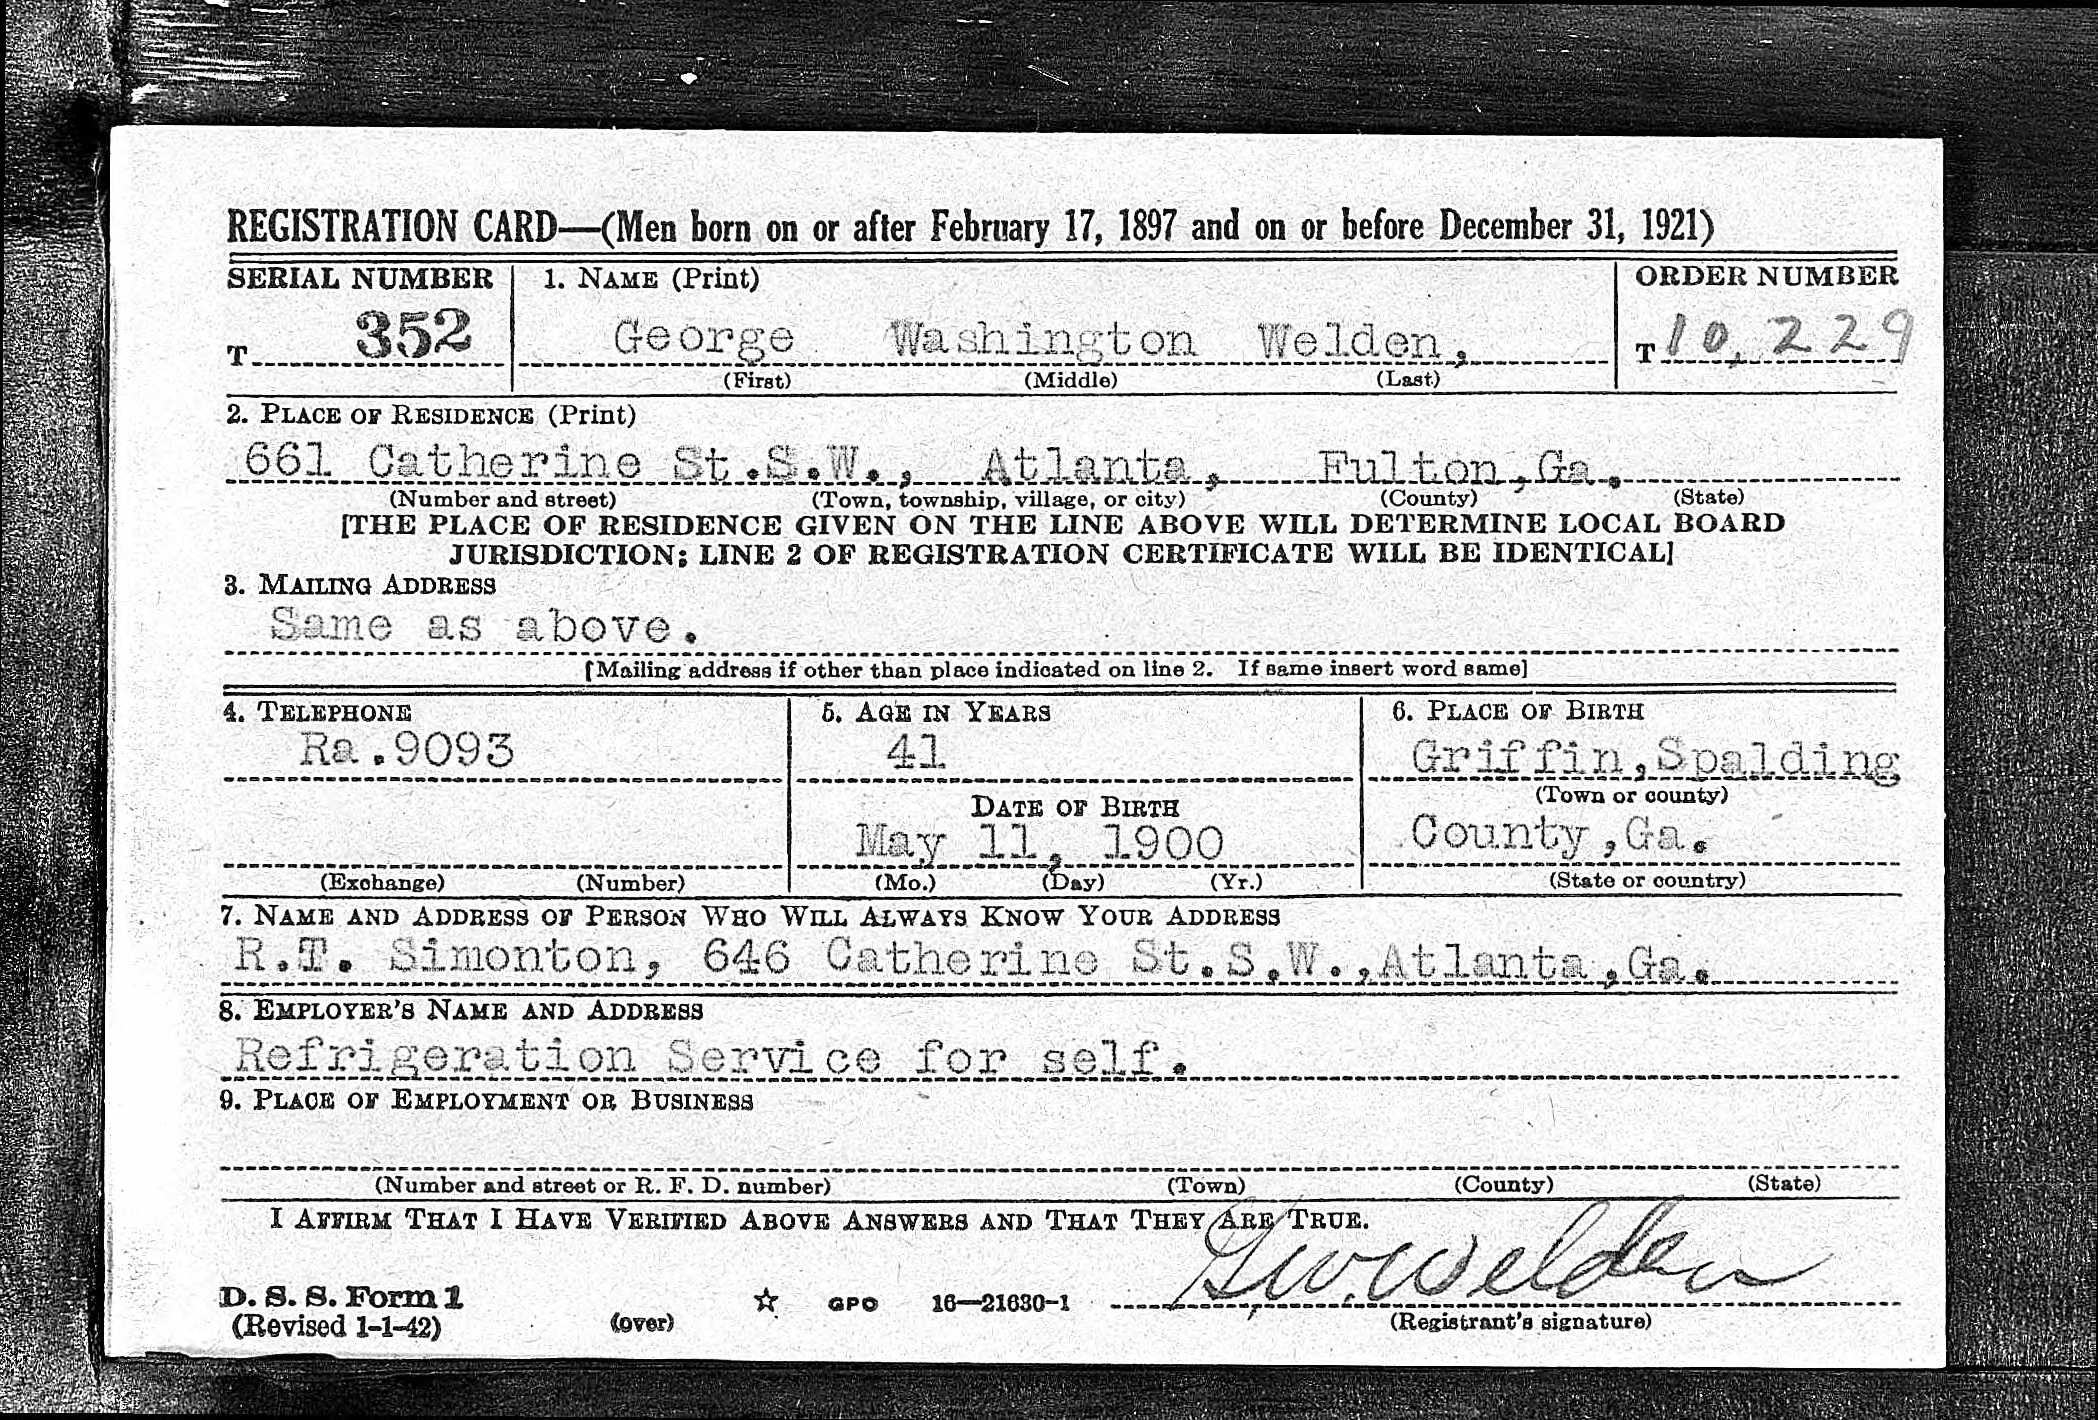 REGISTRATION CARD—(Men born on or after February 17, 1897 and on or before December 31, 1921)
SERIAL NUMBER 1. NAME (Print) ORDER NUMBER
T 352 George Washington Welden, T 10,229
(First) (Middle) (Last)
2. PLACE OF RESIDENCE (Print)
661 Catherine St.S.W., Atlanta, Fulton,Ga.
(Number and street) (Town, township, village, or city) (County) (State)
[THE PLACE OF RESIDENCE GIVEN ON THE LINE ABOVE WILL DETERMINE LOCAL BOARD
JURISDICTION; LINE 2 OF REGISTRATION CERTIFICATE WILL BE IDENTICAL]
3. MAILING ADDRESS
Same as above.
[Mailing address if other than place indicated on line 2. If same insert word same]
4. TELEPHONE 5. AGE IN YEARS 6. PLACE OF BIRTH
Ra.9093 41 Griffin,Spalding
(Town or county)
DATE OF BIRTH
May 11, 1900 County,Ga.
(Exchange) (Number) (Mo.) (Day) (Yr.) (State or country)
7. NAME AND ADDRESS OF PERSON WHO WILL ALWAYS KNOW YOUR ADDRESS
R.T. Simonton, 646 Catherine St.S.W.,Atlanta,Ga.
8. EMPLOYER'S NAME AND ADDRESS
Refrigeration Service for self.
9. PLACE OF EMPLOYMENT OR BUSINESS
(Number and street or R. F. D. number) (Town) (County) (State)
I AFFIRM THAT I HAVE VERIFIED ABOVE ANSWERS AND THAT THEY ARE TRUE.
G.W. Welden
D. S. S. Form 1
(Revised 1-1-42) (over) ☆ GPO 16—21630-1 (Registrant's signature)